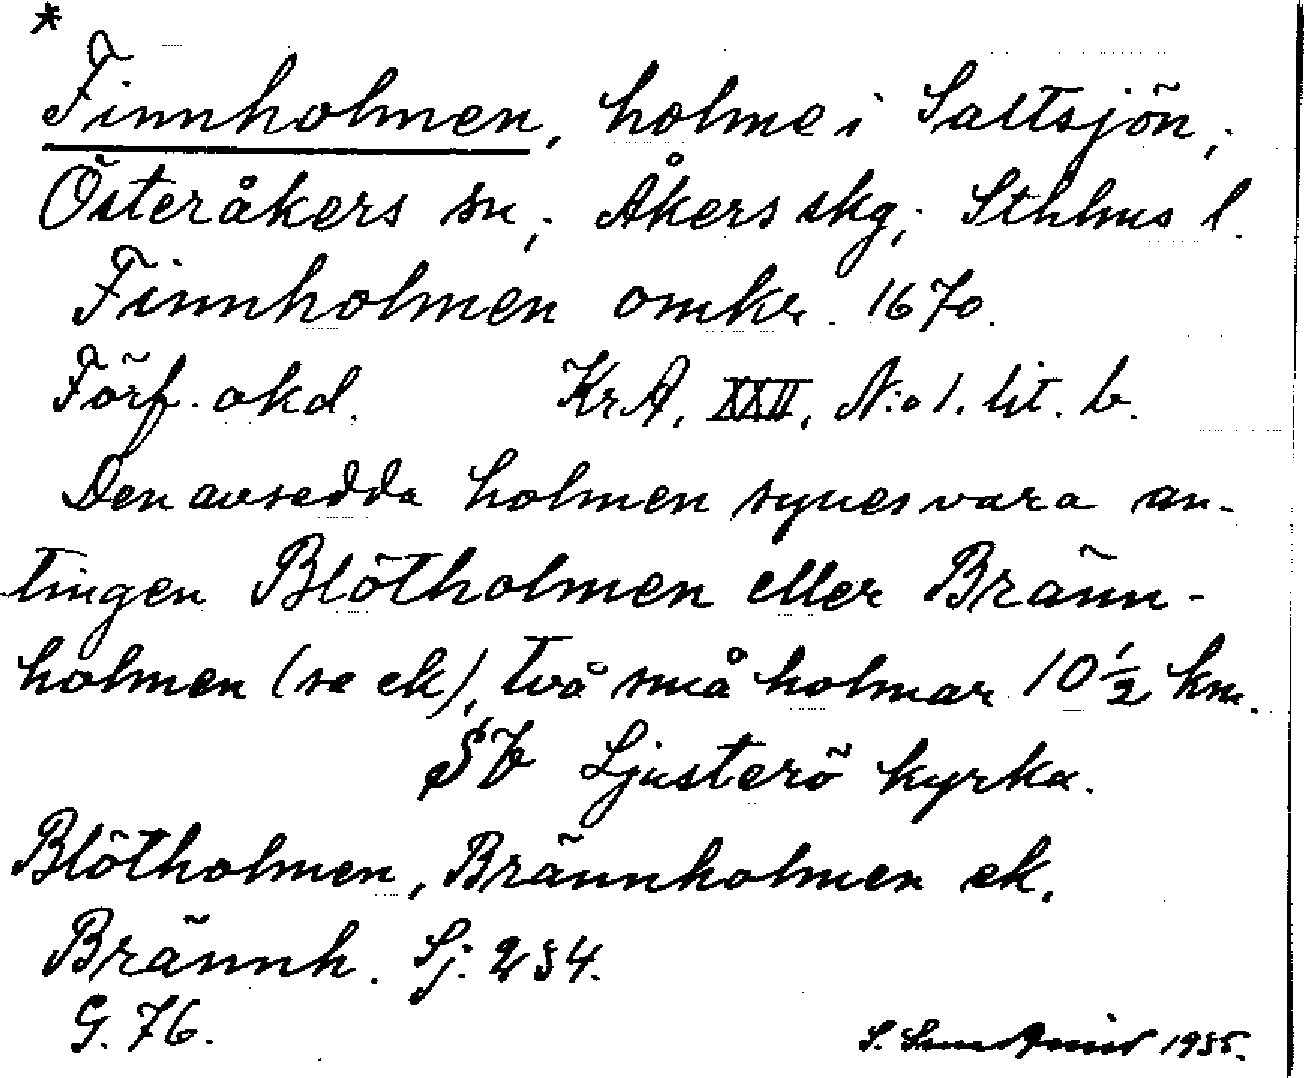 *
Finnholmen, holme i Saltsjön,
Österåkers sn, Åkers skg, Sthlms l.
Finnholmen omkr. 1670.
Förf. okd. KrA, XXII, N:o 1. lit. b.
Den avsedda holmen synes vara an-
tingen Blötholmen eller Bränn-
holmen (se ek), två små holmar 10 1/2 km.
SV Ljusterö kyrka.
Blötholmen, Brännholmen ek.
Brännh. Sj. 234.
G. 76.
S. 1935.